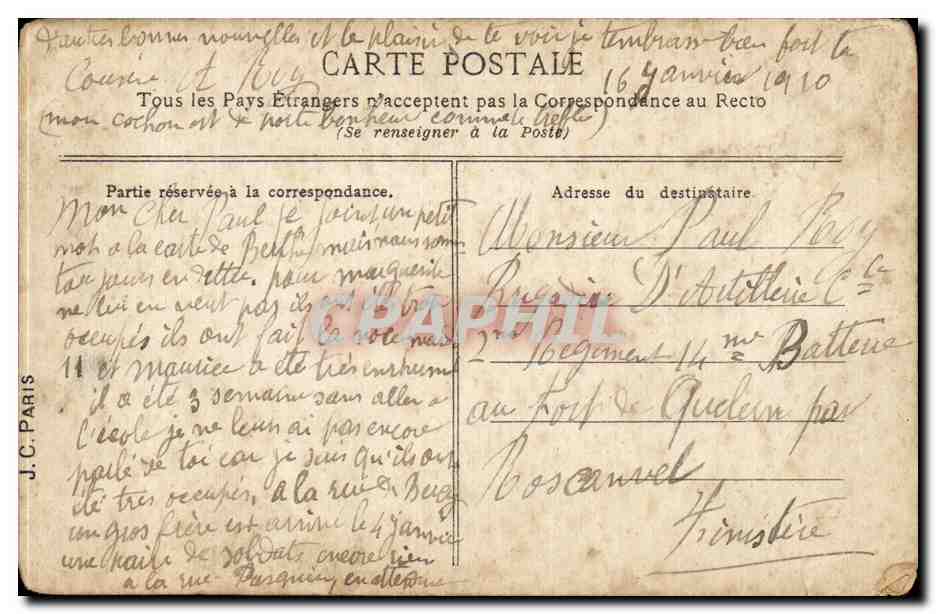 d'autres bonnes nouvelles et le plaisir de te voir je t'embrasse bien fort ta
Cousine A Rey
CARTE POSTALE
16 Janvier 1910
Tous les Pays Étrangers n'acceptent pas la Correspondance au Recto
(mon cochon est de porte bonheur comme le trefle)
(Se renseigner à la Poste)
Partie réservée à la correspondance.
Mon Cher Paul je joint un petit
mot a la carte de Berthe mais nous somm
toujours en dette. pour marguerite
ne lui en veut pas ils
occupés ils ont fait la
11 et maurice a été tres enrhumé
il a été 3 semaine sans aller a
l'école je ne leurs ai pas encore
parlé de toi car je sais qu'ils ont
été tres occupés. a la rue de Bercy
un gros frère est arrivé le 4 janvier
une paire de soldats encore rien
a la rue Pasquier en
Adresse du destinataire.
Monsieur Paul Rey
Brigadier D'Artillerie
2me Régiment 14me Batterie
au fort de Quelern par
Roscanvel
Finistère
J. C. PARIS
CPAPHIL